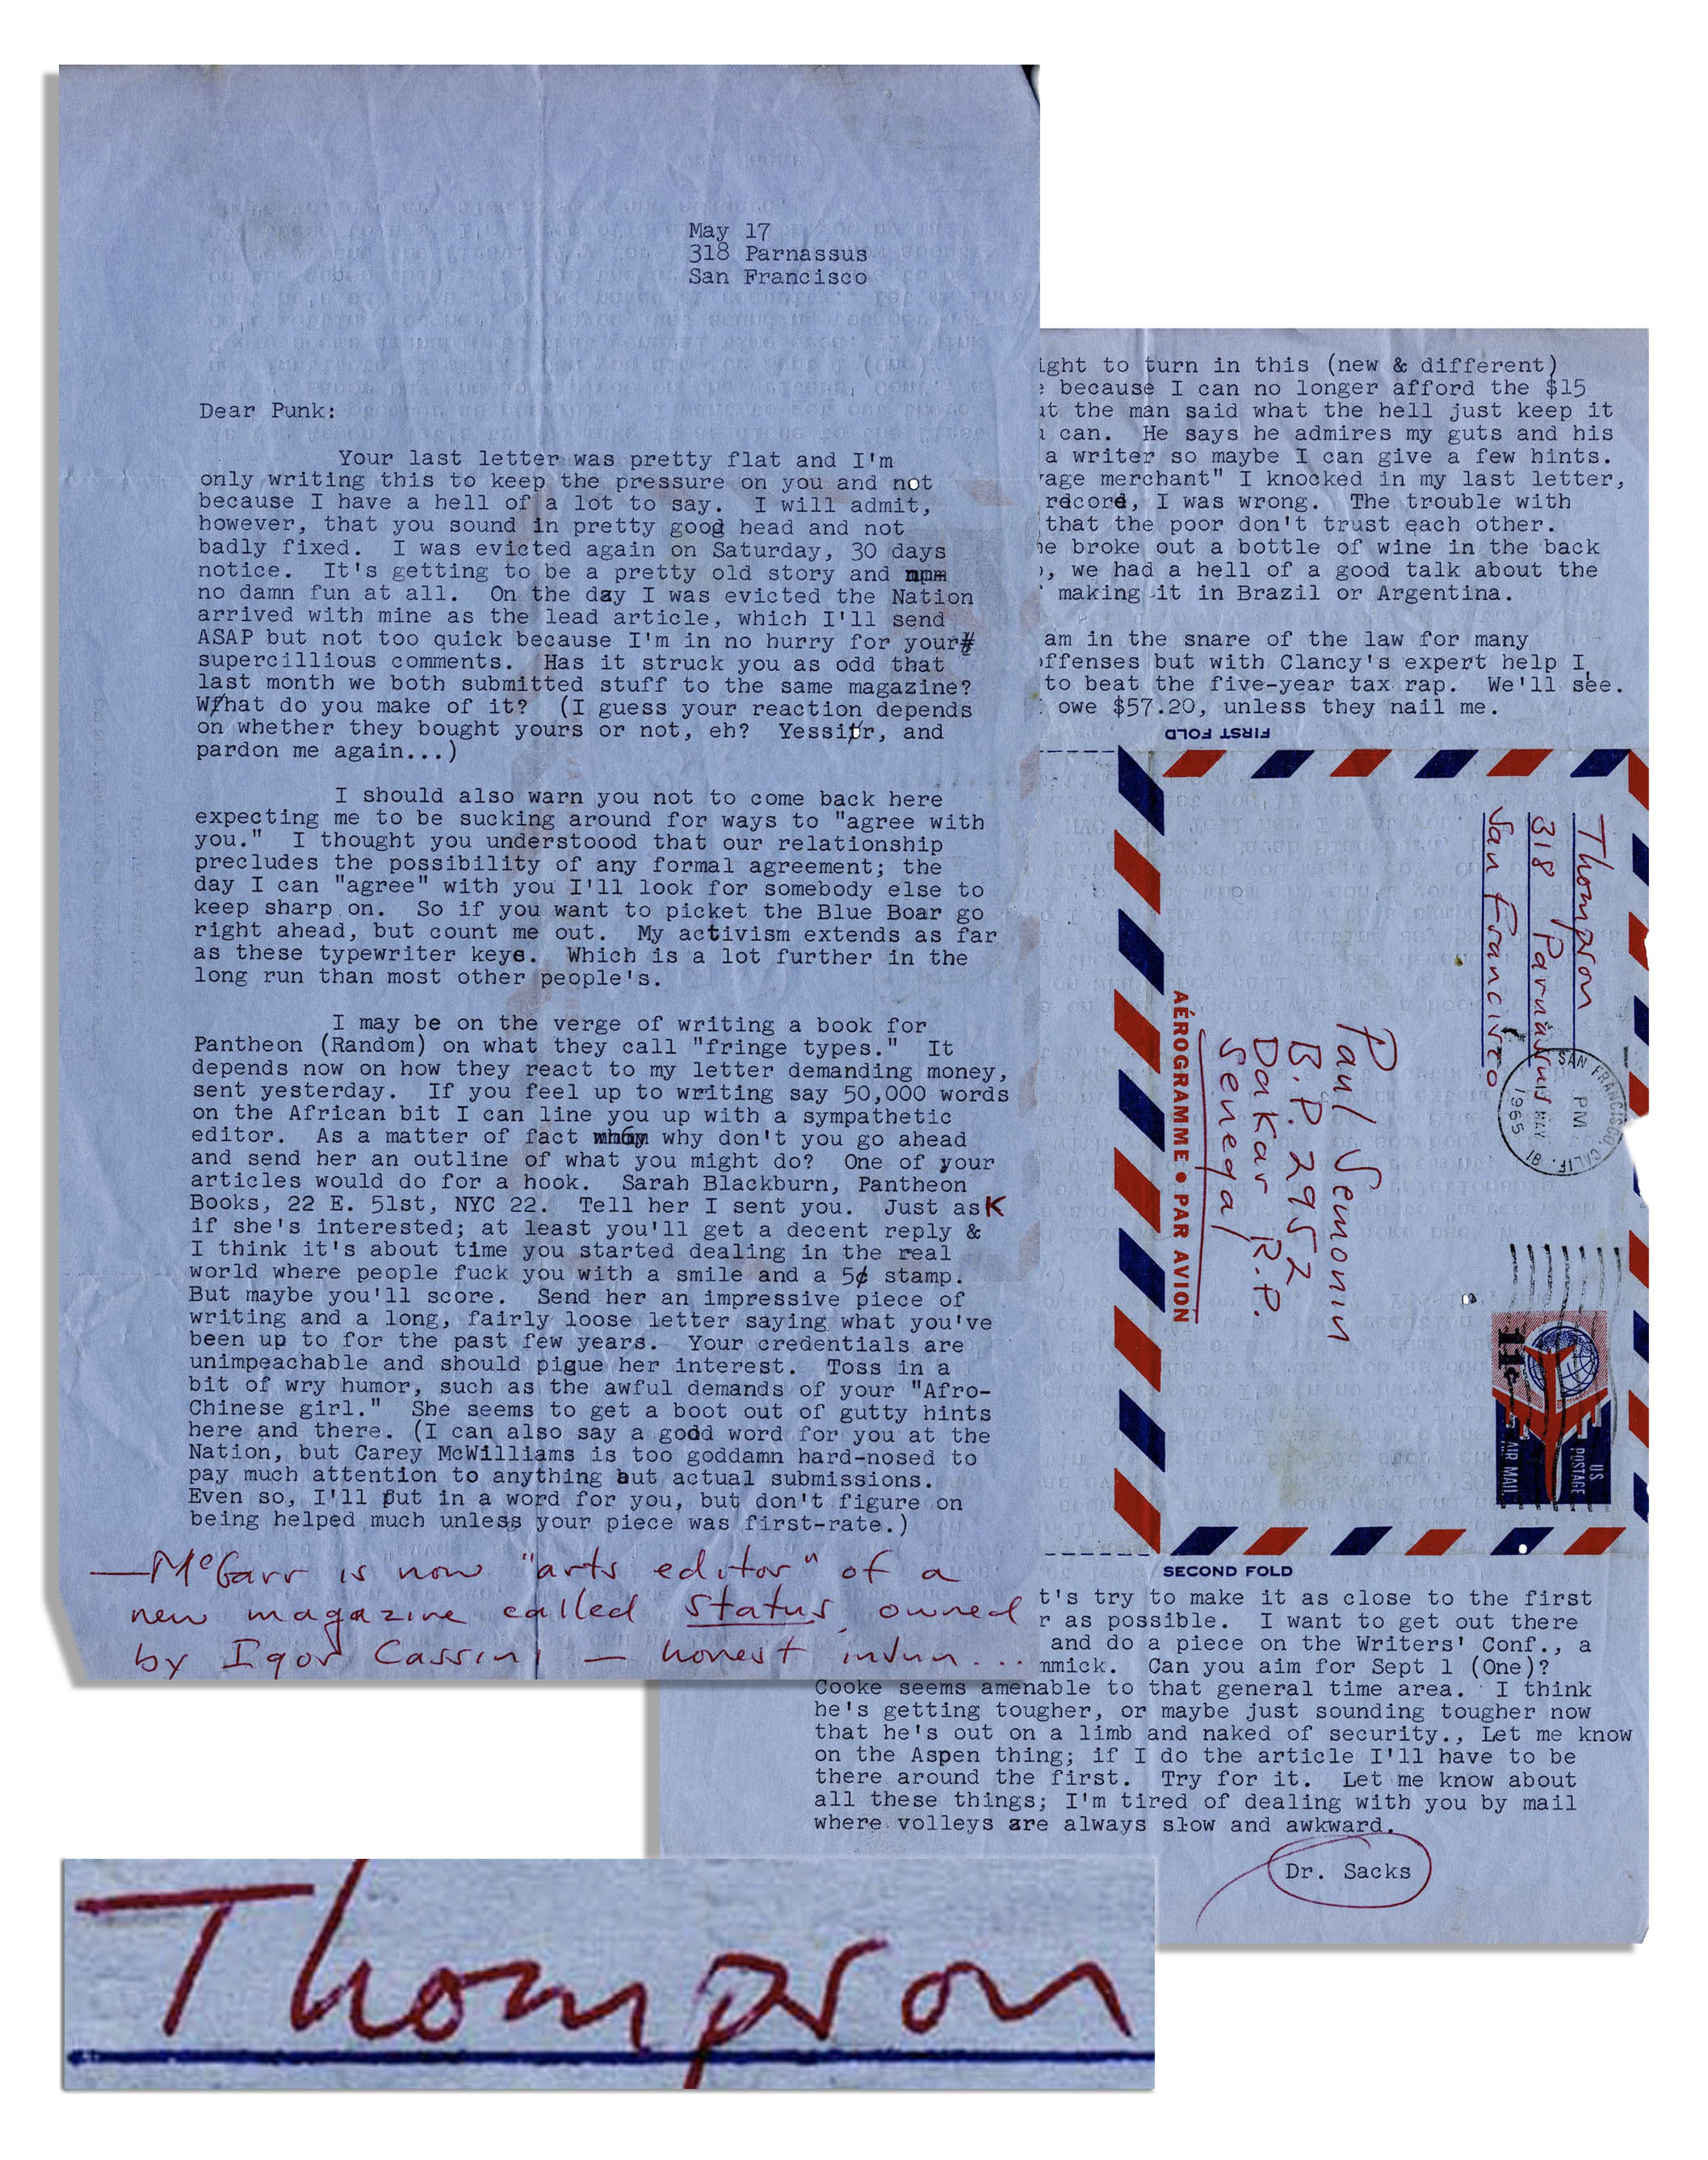 May 17
318 Parnassus
San Francisco
Dear Punk:
Your last letter was pretty flat and I'm
only writing this to keep the pressure on you and not
because I have a hell of a lot to say. I will admit,
however, that you sound in pretty good head and not
badly fixed. I was evicted again on Saturday, 30 days
notice. It's getting to be a pretty old story and
no damn fun at all. On the day I was evicted the Nation
arrived with mine as the lead article, which I'll send
ASAP but not too quick because I'm in no hurry for your
supercillious comments. Has it struck you as odd that
last month we both submitted stuff to the same magazine?
What do you make of it? (I guess your reaction depends
on whether they bought yours or not, eh? Yessir, and
pardon me again...)
I should also warn you not to come back here
expecting me to be sucking around for ways to "agree with
you." I thought you understoood that our relationship
precludes the possibility of any formal agreement; the
day I can "agree" with you I'll look for somebody else to
keep sharp on. So if you want to picket the Blue Boar go
right ahead, but count me out. My activism extends as far
as these typewriter keys. Which is a lot further in the
long run than most other people's.
I may be on the verge of writing a book for
Pantheon (Random) on what they call "fringe types." It
depends now on how they react to my letter demanding money,
sent yesterday. If you feel up to writing say 50,000 words
on the African bit I can line you up with a sympathetic
editor. As a matter of fact why don't you go ahead
and send her an outline of what you might do? One of your
articles would do for a hook. Sarah Blackburn, Pantheon
Books, 22 E. 51st, NYC 22. Tell her I sent you. Just asK
if she's interested; at least you'll get a decent reply &
I think it's about time you started dealing in the real
world where people fuck you with a smile and a 5¢ stamp.
But maybe you'll score. Send her an impressive piece of
writing and a long, fairly loose letter saying what you've
been up to for the past few years. Your credentials are
unimpeachable and should pique her interest. Toss in a
bit of wry humor, such as the awful demands of your "Afro-
Chinese girl." She seems to get a boot out of gutty hints
here and there. (I can also say a godd word for you at the
Nation, but Carey McWilliams is too goddamn hard-nosed to
pay much attention to anything but actual submissions.
Even so, I'll put in a word for you, but don't figure on
being helped much unless your piece was first-rate.)
—McGarr is now "arts editor" of a
new magazine called Status, owned
by Igor Cassini — honest injun...
ight to turn in this (new & different)
because I can no longer afford the $15
ut the man said what the hell just keep it
can. He says he admires my guts and his
a writer so maybe I can give a few hints.
age merchant" I knocked in my last letter,
record, I was wrong. The trouble with
that the poor don't trust each other.
he broke out a bottle of wine in the back
, we had a hell of a good talk about the
making it in Brazil or Argentina.
am in the snare of the law for many
offenses but with Clancy's expert help I
to beat the five-year tax rap. We'll see.
owe $57.20, unless they nail me.
FIRST FOLD
Thompson
318 Parnassus
San Francisco
SAN FRANCISCO, CALIF.
PM
18 MAY
1965
Paul Semonin
B.P. 2952
Dakar R.P.
Senegal
AÉROGRAMME • PAR AVION
11¢
US
POSTAGE
AIR MAIL
SECOND FOLD
t's try to make it as close to the first
r as possible. I want to get out there
and do a piece on the Writers' Conf., a
mmick. Can you aim for Sept 1 (One)?
Cooke seems amenable to that general time area. I think
he's getting tougher, or maybe just sounding tougher now
that he's out on a limb and naked of security., Let me know
on the Aspen thing; if I do the article I'll have to be
there around the first. Try for it. Let me know about
all these things; I'm tired of dealing with you by mail
where volleys are always slow and awkward.
Dr. Sacks
Thompson